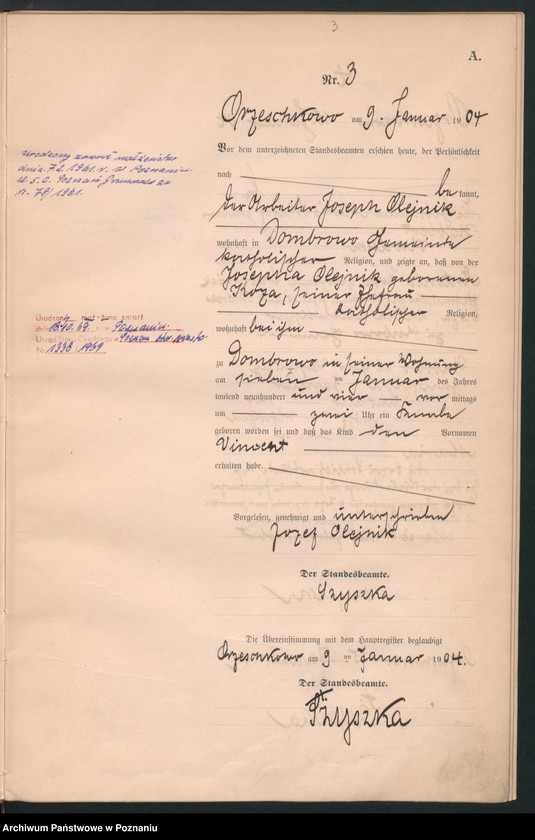 3
A.
Nr. 3
Orzeschkowo am 9. Januar 1904
Vor dem unterzeichneten Standesbeamten erschien heute, der Persönlichkeit
nach be kannt,
der Arbeiter Joseph Olejnik
wohnhaft in Dombrowo Gemeinde
katholischer Religion, und zeigte an, daß von der
Josepha Olejnik geborenen
Koza, seiner Ehefrau
katholischer Religion,
wohnhaft bei ihm
zu Dombrowo in seiner Wohnung
am sieben ten Januar des Jahres
tausend neunhundert und vier vor mittags
um zwei Uhr ein Knabe
geboren worden sei und daß das Kind den Vornamen
Vincent
erhalten habe.
Vorgelesen, genehmigt und unterschrieben
Jozef Olejnik
Der Standesbeamte.
Szyszka
Die Übereinstimmung mit dem Hauptregister beglaubigt
Orzeschkowo am 9 ten Januar 1904.
Der Standesbeamte.
Szyszka
Urodzony zawarł małżeństwo
dnia 7.2.1961. r. w Poznaniu
U.S.C. Poznań Grunwald za
nr. 78/1961.
zmarł
w Poznaniu
Urząd Stanu Cywilnego
Nr 1338/1969
Archiwum Państwowe w Poznaniu